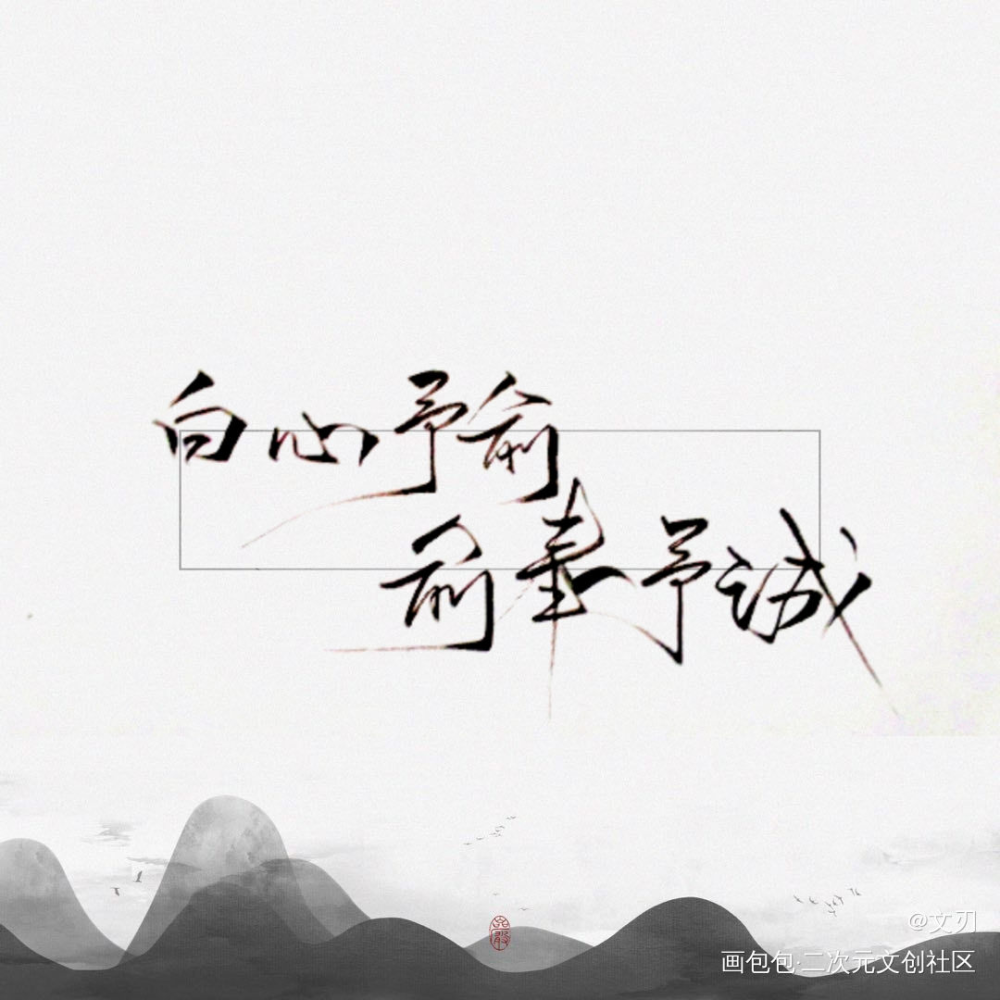 白心予俞
俞奉予诚
@文刃
画包包·二次元文创社区